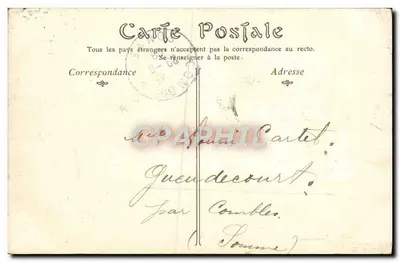 Carte Postale
Tous les pays étrangers n'acceptent pas la correspondance au recto.
Se renseigner à la poste.
Correspondance
Adresse
CPAPHIL
Cartet
Gueudecourt.
par Combles
(Somme)